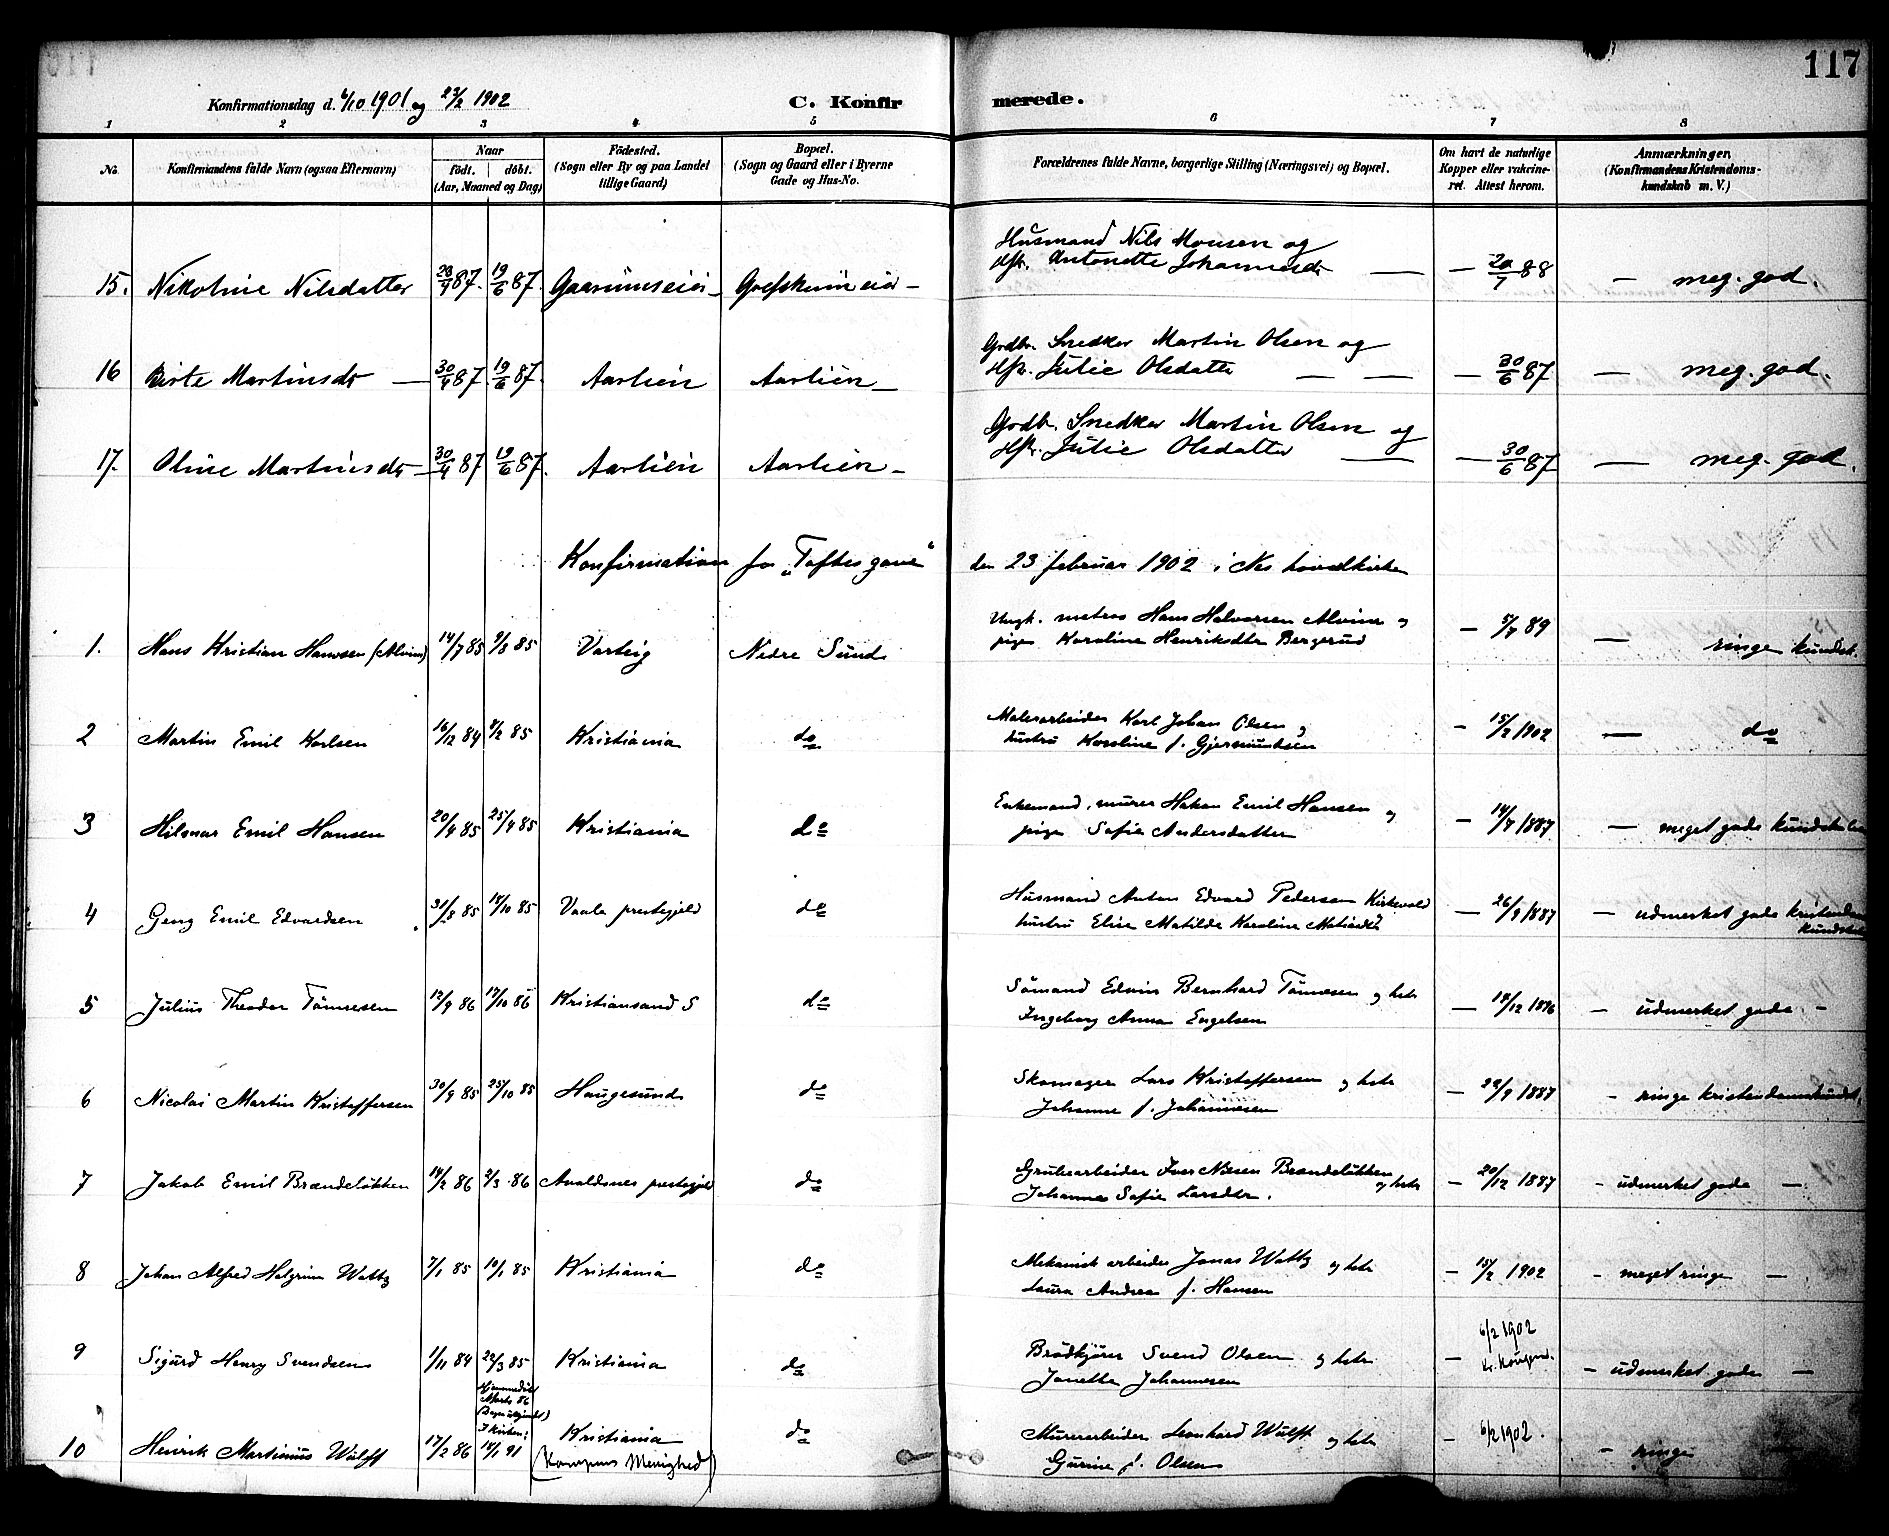 117
Konfirmationsdag d. 6/10 1901 og 23/2 1902
C. Konfirmerede.
1 2 3 4 5 6 7 8
No.
Konfirmandens fulde Navn (ogsaa Efternavn)
Naar
födt. döbt.
(Aar, Maaned og Dag)
Födested.
(Sogn eller By og paa Landet
tillige Gaard)
Bopæl.
(Sogn og Gaard eller i Byerne
Gade og Hus-No.
Forældrenes fulde Navne, borgerlige Stilling (Næringsvei) og Bopæl.
Om havt de naturlige
Kopper eller vakcine-
ret. Attest herom.
Anmærkninger
(Konfirmandens Kristendoms-
kundskab m. V.)
Husmand Nils Monsen og
15. Nikoline Nilsdatter 28/4 87. 19/6 87. Hst. Antonette Johannesdr — — 20/7 88 — meg. god.
Godbr. Snedker Martin Olsen og
16 Birte Martinsdr — 30/4 87. 19/6 87. Aaslien Aaslien — Hst. Julie Olsdatter — — — 30/6 87 — meg. god.
Godb. Snedker Martin Olsen og
17. Oline Martinsdr — 30/4 87 19/6 87. Aaslien Aaslien — Hst. Julie Olsdatter — — 30/6 87 — meg. god.
Konfirmation for „Toftes gave“ den 23 februar 1902 i Nes hovedkirke
Ungk. matros Hans Halvorsen Alvim og
1. Hans Kristian Hanssen (Alvim) 14/7 85 9/8 85 Varteig Nedre Sund pige Karoline Henriksdtr Bergerud — 5/7 89 — ringe kundsk.
Malerarbeider Karl Johan Olsen og
2 Martin Emil Karlsen 16/12 84 8/2 85 Kristiania do hustru Karoline f. Gjermundsen — 15/2 1902 — do
Enkemand, murer Hakon Emil Hansen og
3 Hilmar Emil Hansen 20/4 85 25/9 85 Kristiania do pige Sofie Andersdatter — 14/7 1887 — meget gode kundskaber
Husmand Anton Edvard Pedersen Kirkevold
4 Georg Emil Edvardsen 31/8 85 18/10 85 Vaale prestegjeld do hustru Elise Matilde Karoline — 26/9 1887 — udmerket gode kristendoms
kundskab
Sömand Edvin Bernhard Tönnesen og hstr
5 Julius Theodor Tönnesen 12/9 86 17/10 86 Kristiansand S do Ingeborg Anna Engelsen — 18/12 1896 — udmerket gode —
Skomager Lars Kristoffersen og hstr
6 Nicolai Martin Kristoffersen 30/9 85 25/10 85 Haugesund do Johanne f. Johannesen — 22/9 1887 — ringe kristendomskundsk.
Grubearbeider Iver Nilsen Brændeløkken
7 Jakob Emil Brændeløkken 14/2 86 2/3 86 Avaldsnes prestegjeld do Johanne Sofie Larsdtr. og hstr — 20/12 1887 — udmerket gode —
Mekanisk arbeider Jonas Wattz og hstr
8 Johan Alfred Halgrim Wattz 7/1 85 10/1 85 Kristiania do Laura Andrea f. Hansen — 15/2 1902 — meget ringe —
6/2 1902
Brödkjörer Svend Olsen og hstr
9 Sigurd Henry Svendsen 1/11 84 22/3 85 Kristiania do Janetta Johannesen — — udmerket gode —
Hjemmedöbt
Marts 86
I kirken:
Murerarbeider Leonhard Wülff og hstr
10 Henrik Martinius Wülff 17/2 86 18/1 91 Kristiania do Gurine f. Olsen — 6/2 1902. — ringe
(Kampens Menighed)